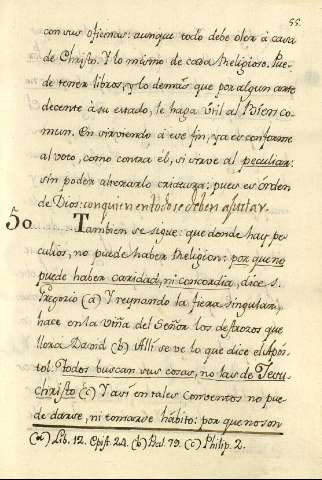 55.
con sus oficinas: aunque todo debe oler à casa
de Christo. Y lo mismo de cada Religioso. Pue-
de tener libros, y lo demàs que por algun arte
decente à su estado, le haga util al Bien co-
mun. En sirviendo à ese fin, ya es conforme
al voto, como contra èl, si sirve al peculiar:
sin poder alterarlo criatura: pues es òrden
de Dios: con quien en todo se deben ajustar.
50 Tambien se sigue: que donde hay pe-
culios, no puede haber Religion: por que no
puede haber caridad, ni concordia, dice S.
Gregorio (a) Y reynando la fiera singular,
hace en la Viña del Señor los destrozos que
llora David (b) Alli se ve lo que dice el Apòs-
tol. Todos buscan sus cosas, no las de Jesu-
christo (c) Y asi en tales Conventos no pue-
de darse, ni tomarse hàbito: por que no son
(a) Lib. 12. Epist. 24. (b) Psal. 79. (c) Philip. 2.